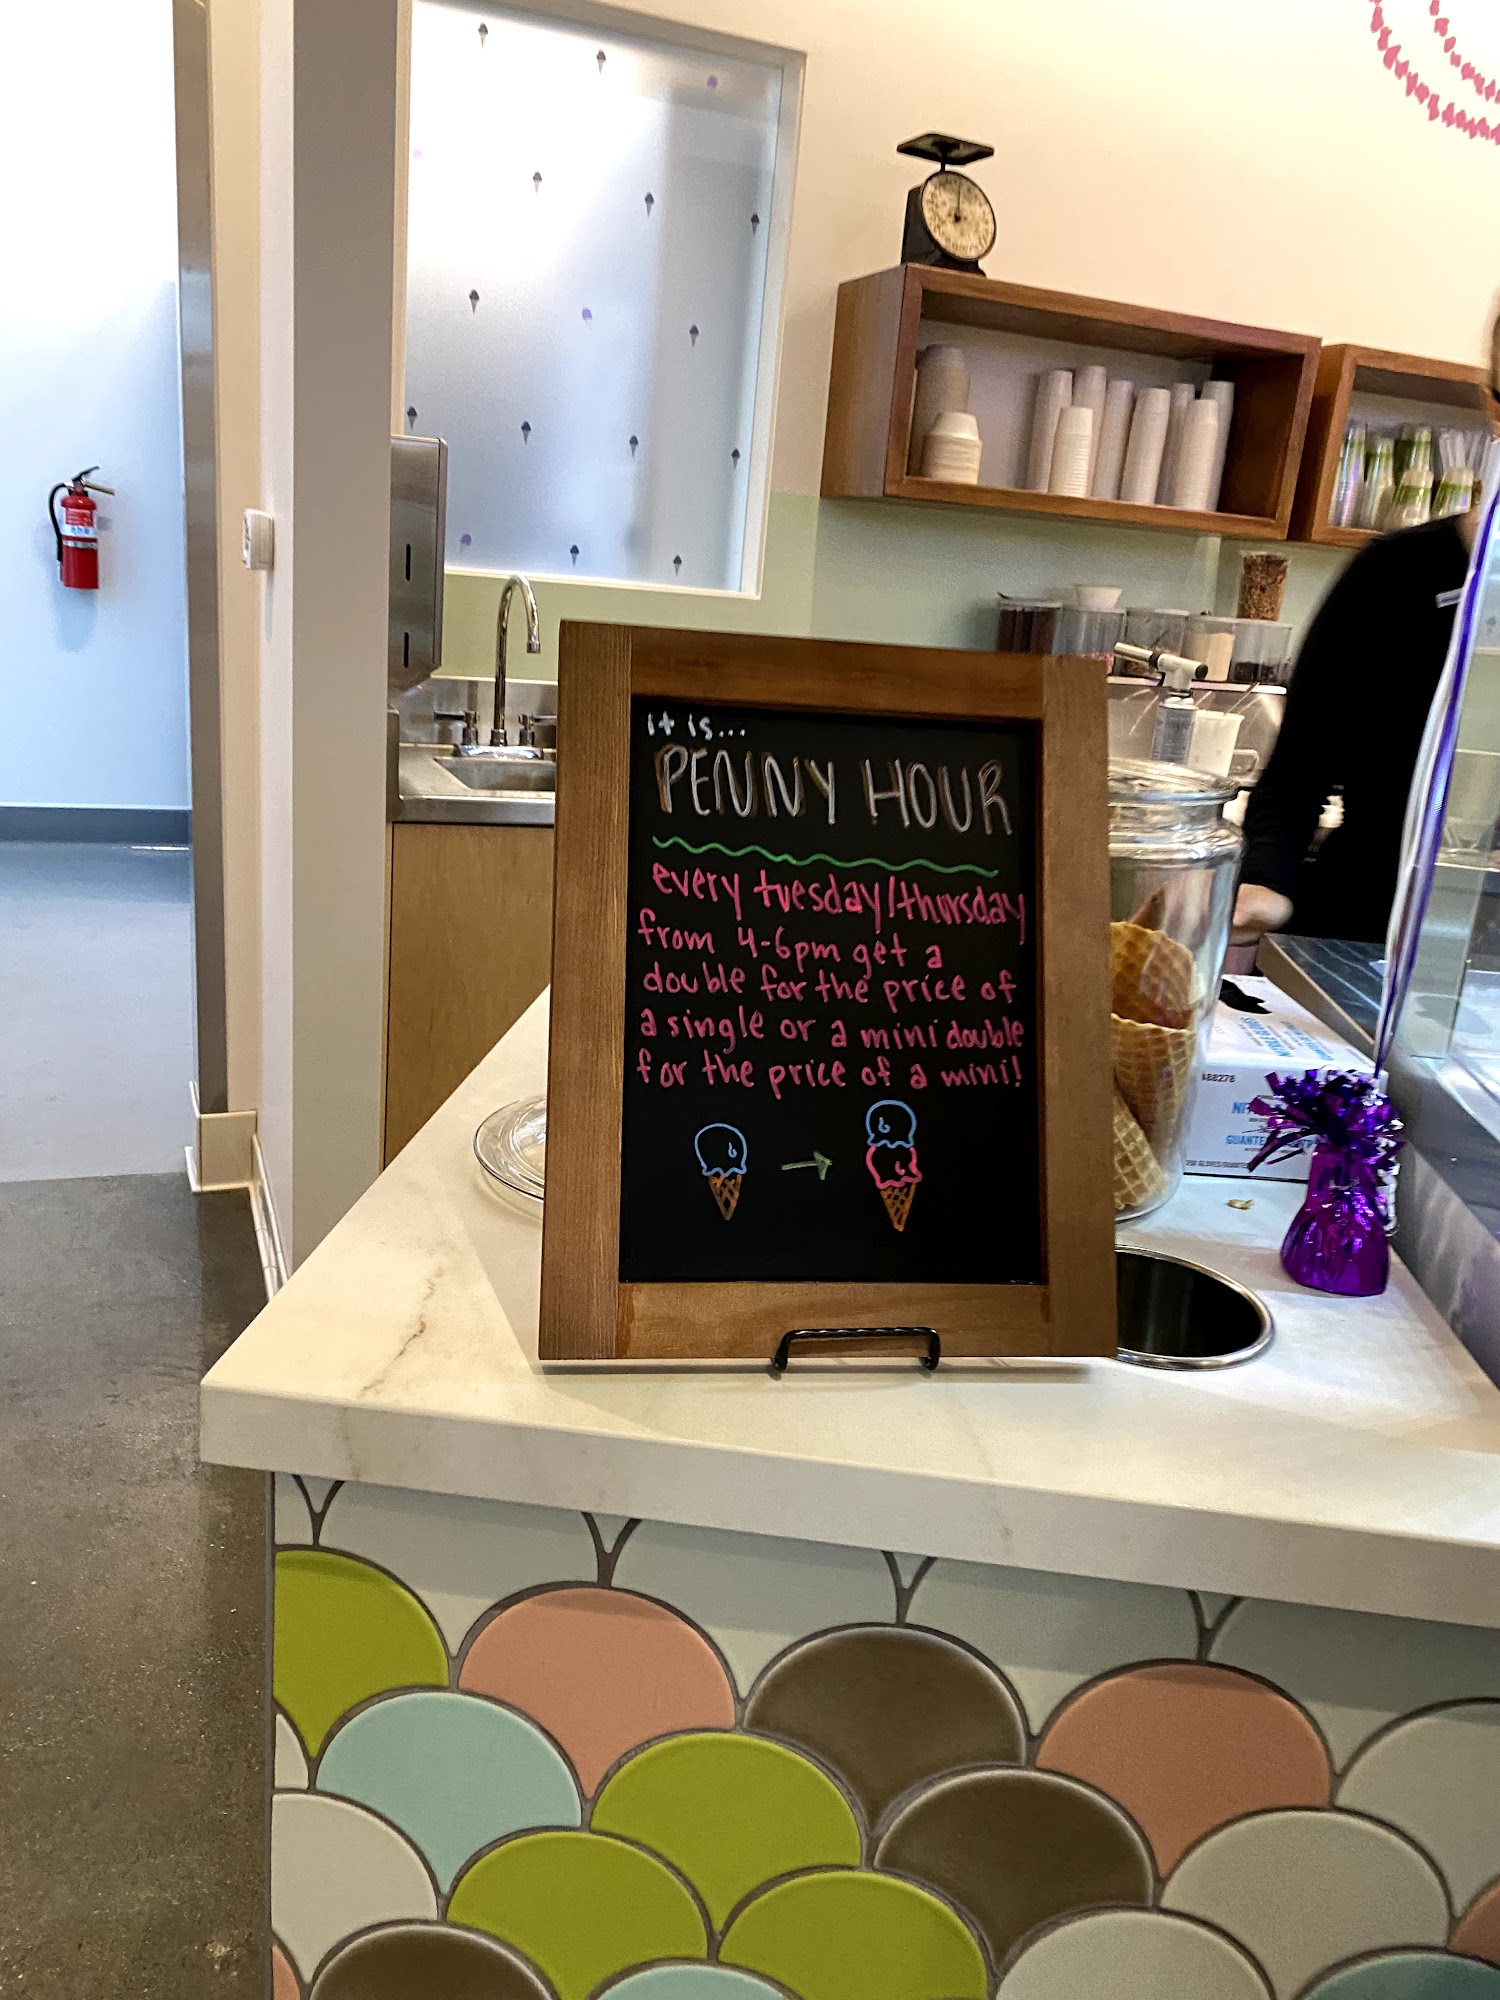 it is...
PENNY HOUR
every tuesday/thursday
from 4-6pm get a
double for the price of
a single or a mini double
for the price of a mini!
A88278